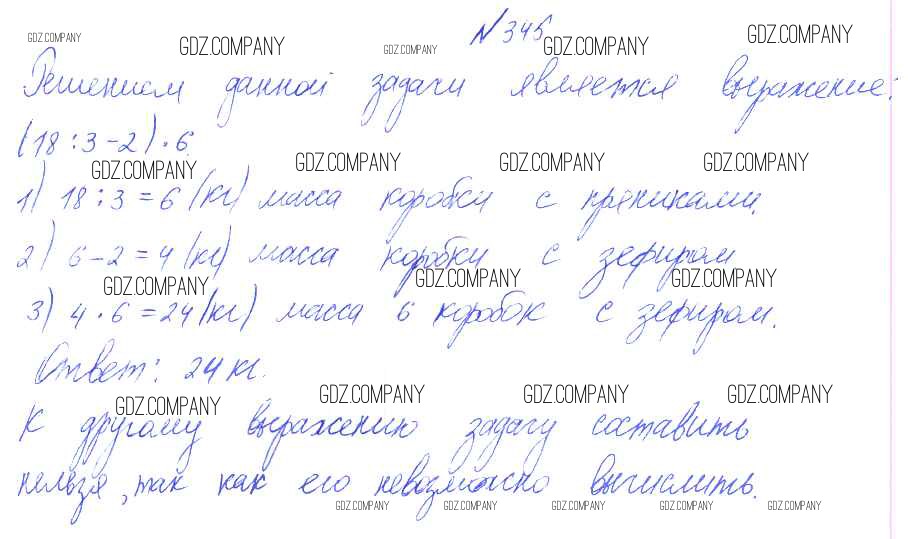 №345
Решением данной задачи является выражение:
(18:3-2)·6
1) 18:3=6 (кг) масса коробки с пряниками.
2) 6-2=4 (кг) масса коробки с зефиром
3) 4·6=24 (кг) масса 6 коробок с зефиром.
Ответ: 24 кг.
К другому выражению задачу составить
нельзя, так как его невозможно вычислить.
GDZ.COMPANY GDZ.COMPANY GDZ.COMPANY GDZ.COMPANY GDZ.COMPANY
GDZ.COMPANY GDZ.COMPANY GDZ.COMPANY GDZ.COMPANY
GDZ.COMPANY GDZ.COMPANY GDZ.COMPANY
GDZ.COMPANY GDZ.COMPANY GDZ.COMPANY GDZ.COMPANY
GDZ.COMPANY GDZ.COMPANY GDZ.COMPANY GDZ.COMPANY GDZ.COMPANY